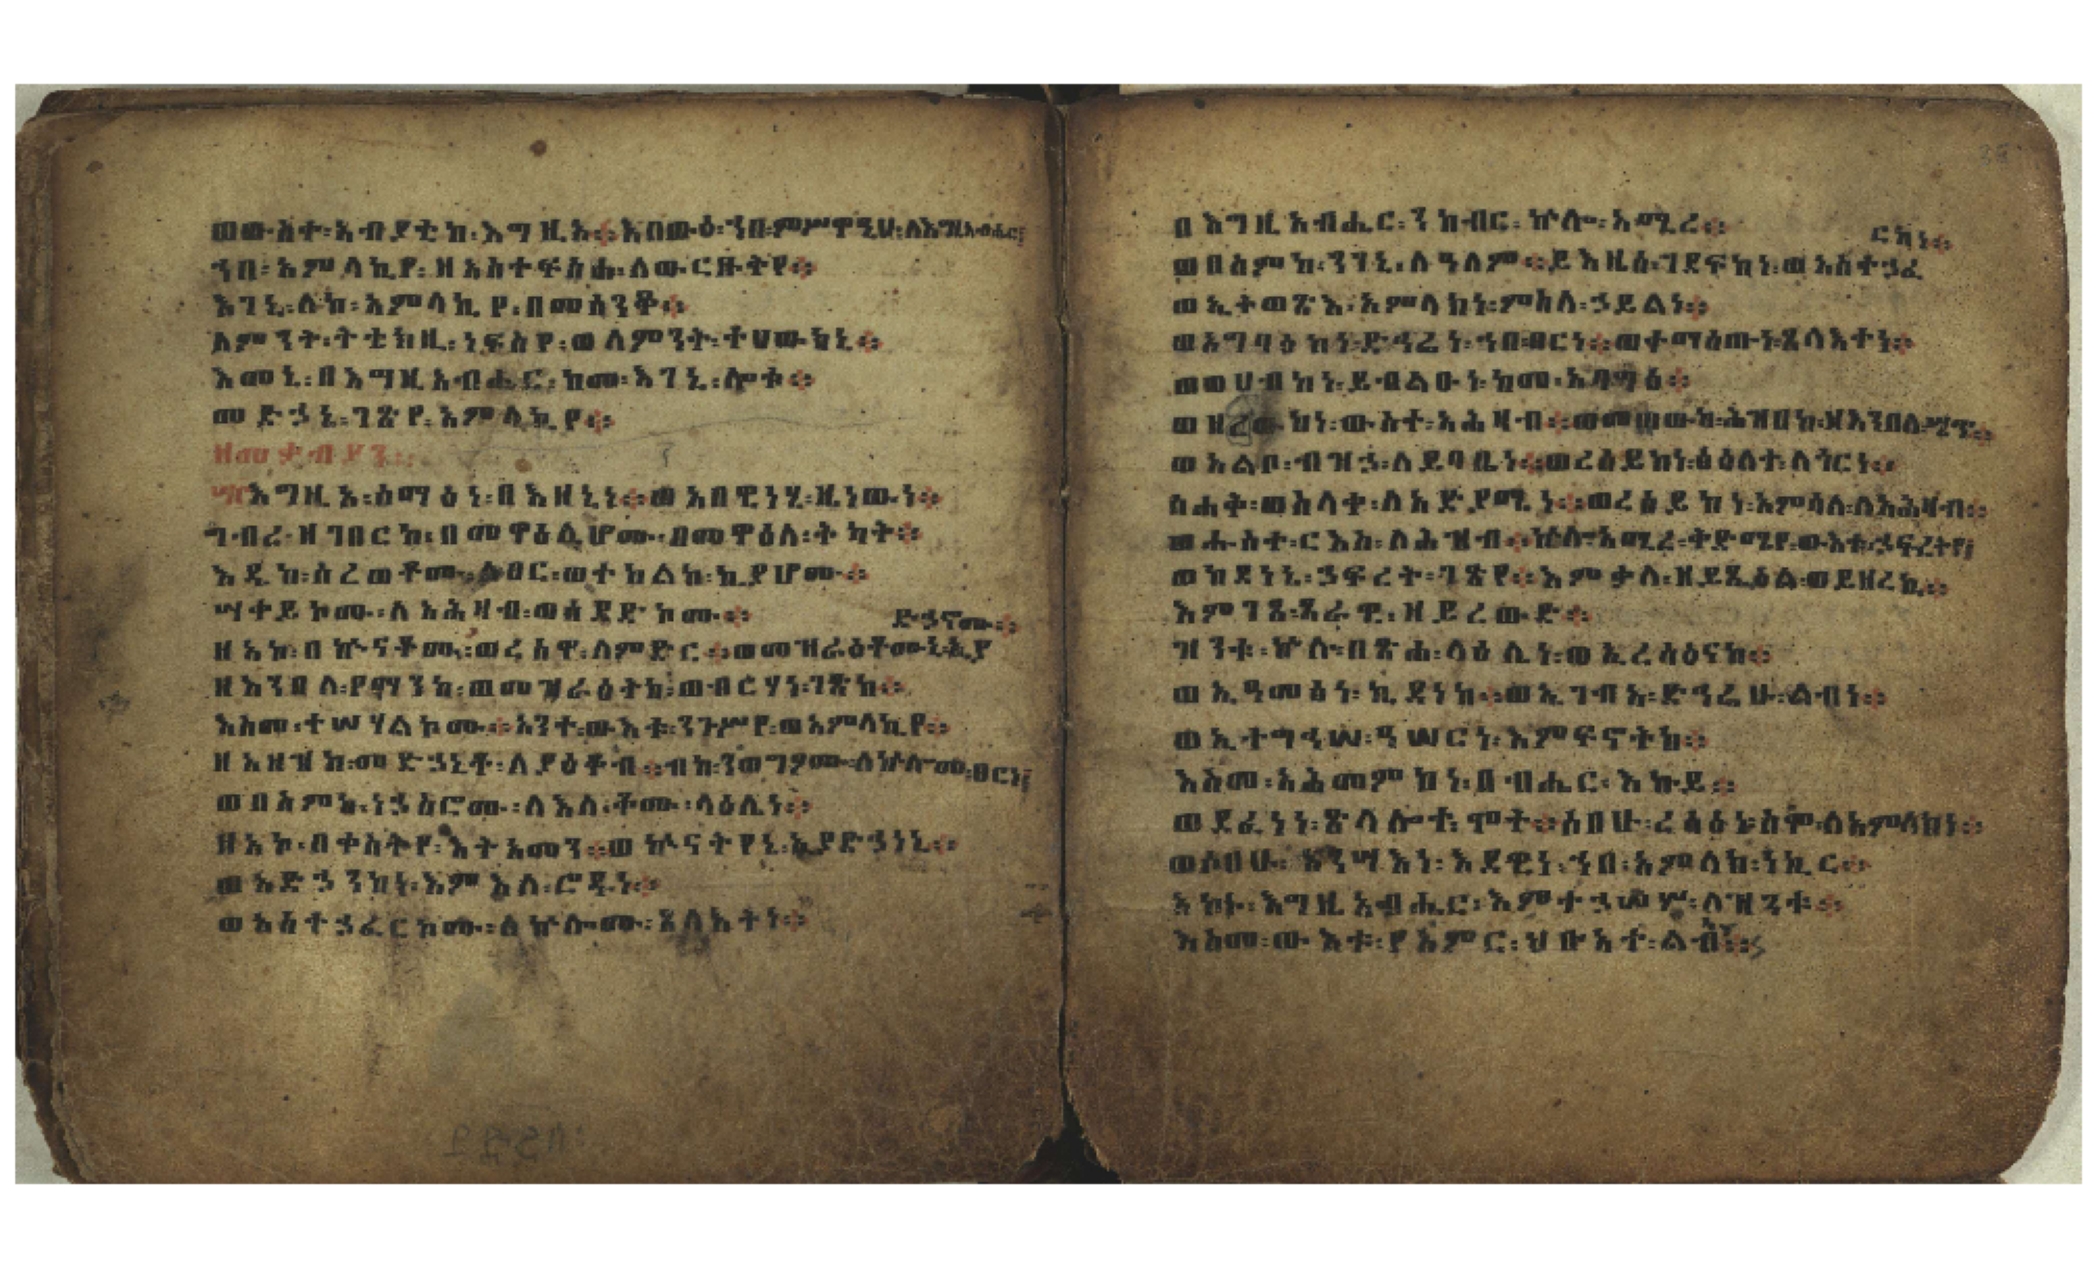 ወውስተ፡አብያቲከ፡እግዚአ። እበውዕ፡ኀበ፡ምሥዋዒሁ፡ለእግዚአብሔር፤
ኀበ፡አምላኪየ፡ዘአስተፍስሐ፡ለውርዙትየ።
እገኒ፡ለከ፡አምላኪየ፡በመሰንቆ።
ለምንት፡ትቴክዚ፡ነፍስየ፡ወለምንት፡ተሀውክኒ።
እመኒ፡በእግዚአብሔር፡ከመ፡እገኒ፡ሎቱ።
መድኃኒ፡ገጽየ፡አምላኪየ።
ዘመቃብያን።
፵፫እግዚአ፡ሰማዕነ፡በእዘኒነ። ወአበዊነሂ፡ዜነውነ።
ግብረ፡ዘገበርከ፡በመዋዕሊሆሙ፡በመዋዕለ፡ትካት።
እዴከ፡ሰረወቶሙ፡ለፀር፡ወተከልከ፡ኪያሆሙ።
ሣቀይኮሙ፡ለአሕዛብ፡ወሰደድኮሙ።
ዘአኮ፡በኵናቶሙ፡ወረስዋ፡ለምድር። ወመዝራዕቶሙኒ፡ኢያ
ድኃኖሙ።
ዘእንበለ፡የማንከ፡ወመዝራዕትከ፡ወብርሃነ፡ገጽከ።
እስመ፡ተሣሃልኮሙ። አንተ፡ውእቱ፡ንጉሥየ፡ወአምላኪየ።
ዘአዘዝከ፡መድኃኒቶ፡ለያዕቆብ። ብከ፡ንወግኦሙ፡ለኵሎሙ፡ፀርነ፤
ወበስምከ፡ነኃስሮሙ፡ለእለ፡ቆሙ፡ላዕሌነ።
ዘአኮ፡በቀስትየ፡እትአመን። ወኵናትየኒ፡ኢያድኃነኒ።
ወአድኃንከነ፡እምእለ፡ሮዱነ።
ወአስተኃፈርኮሙ፡ለኵሎሙ፡ጸላእትነ።
በእግዚአብሔር፡ንከብር፡ኵሎ፡አሚረ።
ወበስምከ፡ንገኒ፡ለዓለም። ይእዜሰ፡ገደፍከነ፡ወአስተኃፈ
ርከነ።
ወኢትወፅእ፡አምላክነ፡ምስለ፡ኃይልነ።
ወአግባዕከነ፡ድኅሬነ፡ኀበ፡ፀርነ። ወተማዕጡነ፡ጸላእትነ።
ወወሀብከነ፡ይብልዑነ፡ከመ፡አባግዕ።
ወዘረውከነ፡ውስተ፡አሕዛብ። ወመጠውከ፡ሕዝበከ፡ዘእንበለ፡ሤጥ።
ወአልቦ፡ብዝኃ፡ለይባቤነ። ወረሰይከነ፡ፅዕለተ፡ለጎርነ።
ስሐቅ፡ወስላቀ፡ለአድያሚነ። ወረሰይከነ፡አምሳለ፡ለአሕዛብ።
ወሑስተ፡ርእስ፡ለሕዝብ። ኵሎ፡አሚረ፡ቅድሜየ፡ውእቱ፡ኃፍረትየ፤
ወከደነኒ፡ኃፍረት፡ገጽየ። እምቃለ፡ዘይጼዕል፡ወይዘረኪ።
እምገጸ፡ጸራዊ፡ዘይረውድ።
ዝንቱ፡ኵሉ፡በጽሐ፡ላዕሌነ፡ወኢረሳዕናከ።
ወኢዓመፅነ፡ኪዳነከ። ወኢገብአ፡ድኅሬሁ፡ልብነ።
ወኢተግኅሠ፡ዓሠርነ፡እምፍኖትከ።
እስመ፡አሕመምከነ፡በብሔር፡እኩይ።
ወደፈነነ፡ጽላሎተ፡ሞት። ሶበሁ፡ረሳዕኑ፡ስሞ፡ለአምላክነ።
ወሶበሁ፡አንሣእነ፡እደዊነ፡ኀበ፡አምላክ፡ነኪር።
አኮኑ፡እግዚአብሔር፡እምተኃሠሦ፡ለዝንቱ።
እስመ፡ውእቱ፡የአምር፡ህቡአተ፡ልብ።